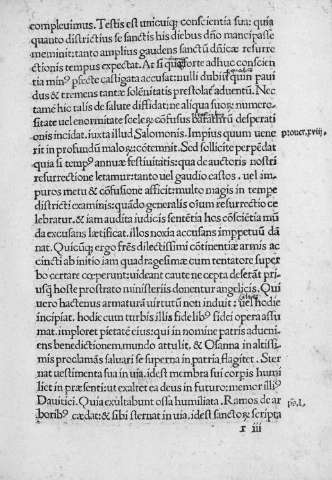 compleuimus. Testis est unicuiqꝫ conscientia sua: quia
quanto districtius se sanctis his diebus dño mancipasse
meminit: tanto amplius gaudens sanctũ dñicæ resurre
ctionis tempus expectat. At si quẽ forte adhuc conscien
tia minꝰ pfecte castigata accusat: nulli dubiũ quin paui
dus & tremens tantæ solẽnitatis prestolaẽ aduentũ. Nec
tamẽ hic talis de salute diffidat: ne aliqua suoꝝ numero-
sitate uel enormitate sceleꝝ cõfusus desperati
onis incidat. iuxta illud Salomonis. Impius quum uene
rit in profundũ maloꝝ: cõtemnit. Sed sollicite perpẽdat
quia si tempꝰ annuæ festiuitatis: qua de auctoris nostri
resurrectione letamur: tanto uel gaudio castos. uel im-
puros metu & cõfusione afficit: multo magis in tempe
districti examinis: quãdo generalis oĩum resurrectio ce
lebratur, & iam audita iudicis sentẽtia hos cõsciẽtia mũ
da excusans lætificat. illos noxia accusans impetuũ dã
nat. Quicũqꝫ ergo frẽs dilectissimi cõtinentiæ armis ac
cincti ab initio iam quadragesimæ cum tentatore super
bo certare cœperunt: uideant caute ne cepta deserãt pri-
usqꝫ hoste prostrato ministeriis donentur angelicis. Qui
uero hactenus armaturã uirtutũ non induit: uel hodie
incipiat. hodie cum turbis illis fidelibꝰ fidei opera assu
mat. imploret pietatẽ eius: qui in nomine patris adueni
ens benedictionem mundo attulit, & Osanna in altissi-
mis proclamãs saluari se superna in patria flagitet. Ster
nat uestimenta sua in uia. idest membra sui corpis humi
liet in præsenti: ut exaltet ea deus in futuro: memor illiꝰ
Dauitici. Quia exultabunt ossa humiliata. Ramos de ar
boribꝰ cædat: & sibi sternat in uia. idest sanctoꝝ scripta
r iii
prouer. xviij.
ps. L.